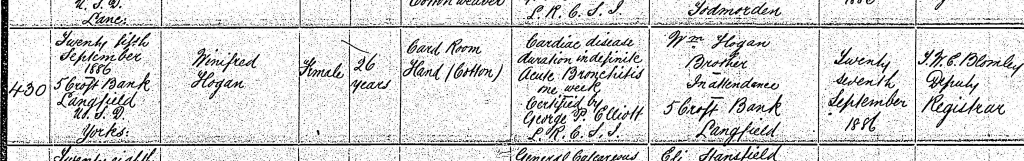 U. S. D.
Lane:
Cotton Weaver
L. R. C. S. I.
Todmorden
1886
430
Twenty fifth
September
1886
5 Croft Bank
Langfield
U. S. D.
Yorks:
Winifred
Hogan
Female
26
years
Card Room
Hand (Cotton)
Cardiac disease
duration indefinite
Acute Bronchitis
one week
Certified by
George P. Elliott
L. R. C. S. I.
Wm Hogan
Brother
In attendence
5 Croft Bank
Langfield
Twenty
seventh
September
1886
J. W. E. Blomley
Deputy
Registrar
Twenty eighth
General Calcareous
Eli Stansfield